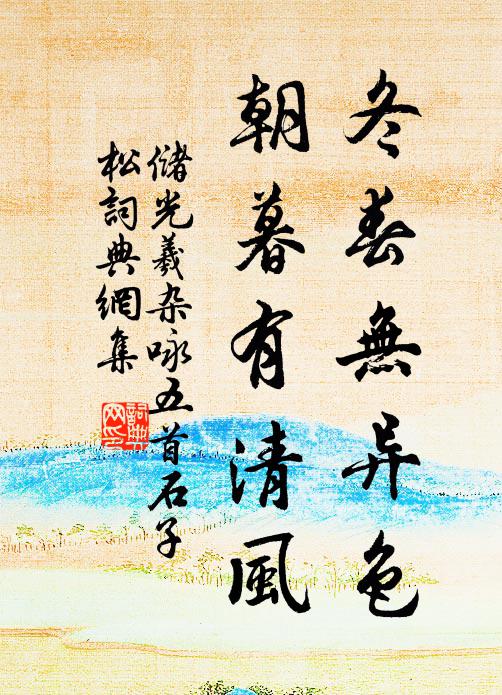 冬春無异色
朝暮有清風
儲光羲杂咏五首石子
松詞典網集
詞典
网